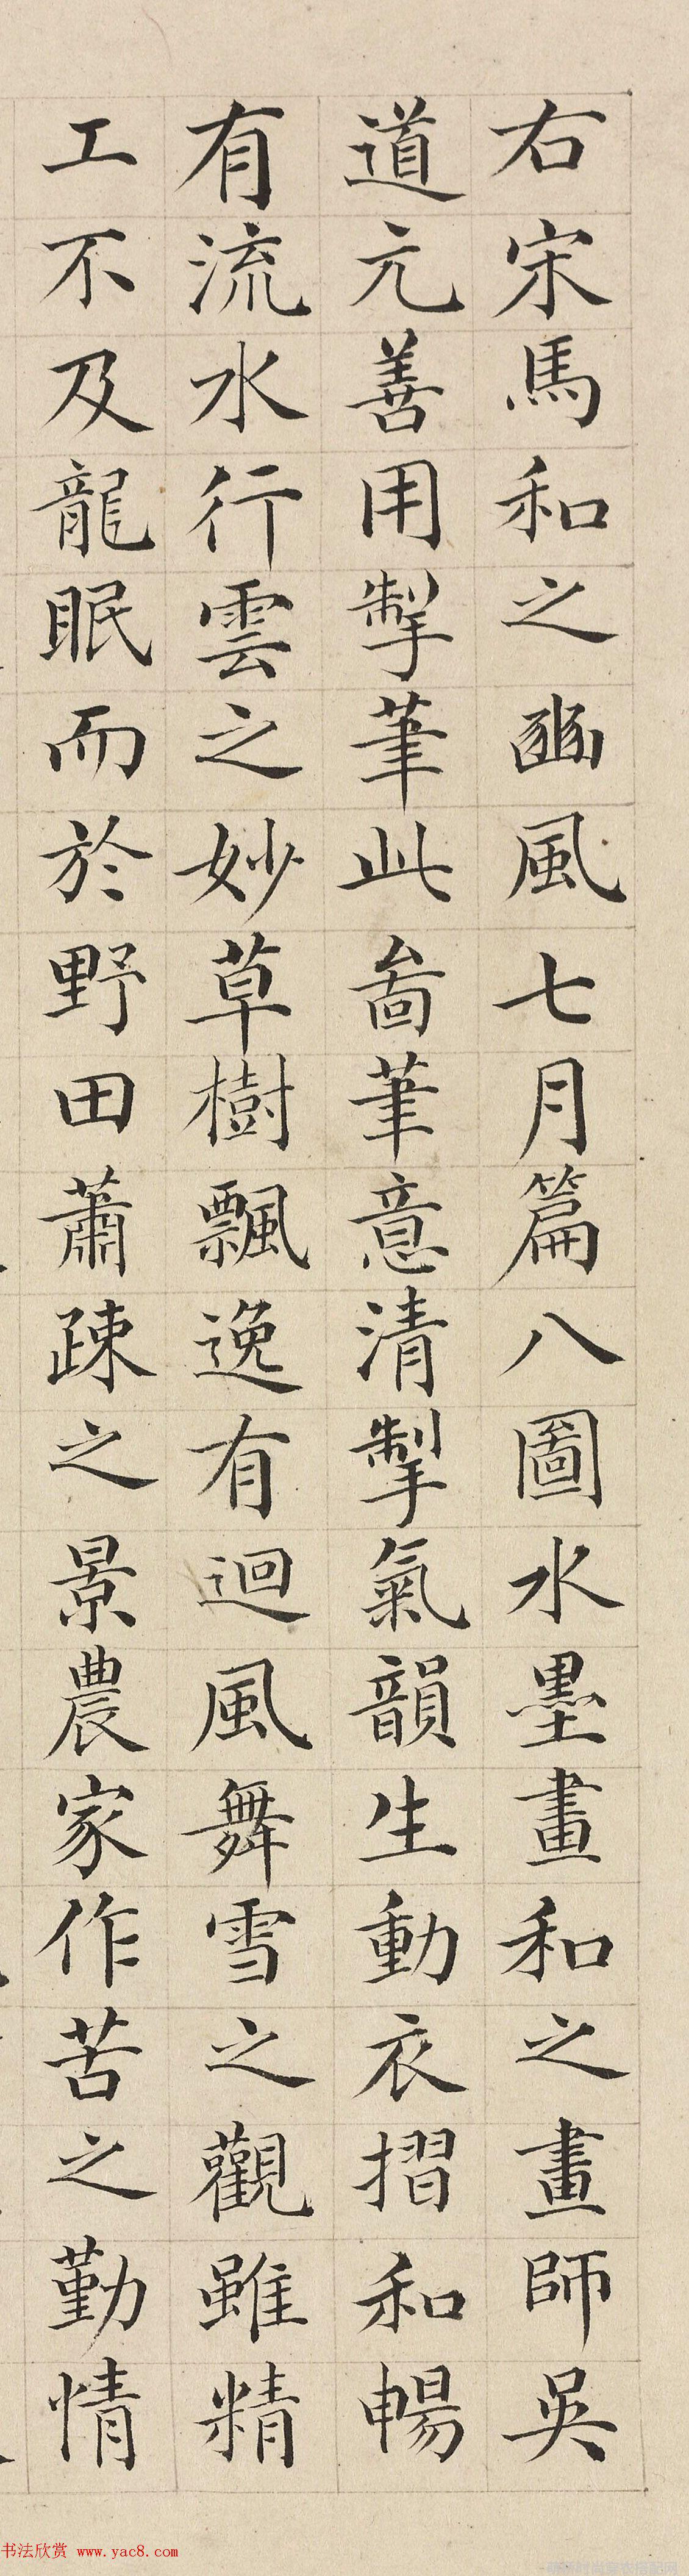 右宋馬和之豳風七月篇八圖水墨畫和之畫師吳
道元善用掣筆此啚筆意清掣氣韻生動衣摺和暢
有流水行雲之妙草樹飄逸有迴風舞雪之觀雖精
工不及龍眠而於野田蕭疎之景農家作苦之勤情
书法欣赏 www.yac8.com